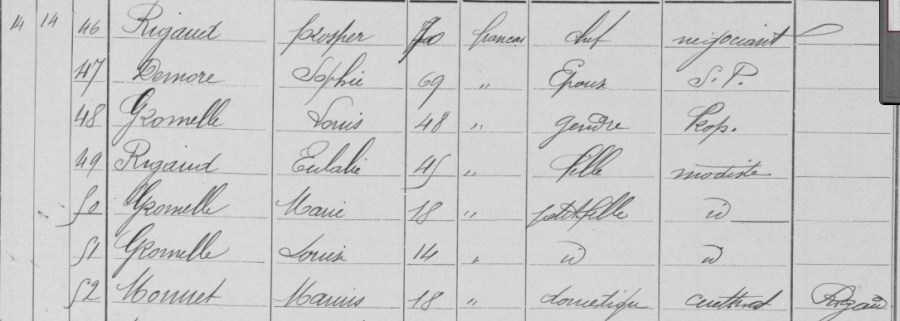 14 14 46 Rigaud Prosper 70 français chef négociant
47 Demore Sophie 69 " Epoux S. P.
48 Gromelle Louis 48 " gendre
49 Rigaud Eulalie 45 " fille modiste
50 Gromelle Marie 18 " petite fille id
51 Gromelle Louise 14 " id id
52 Monnet Marius 18 " domestique